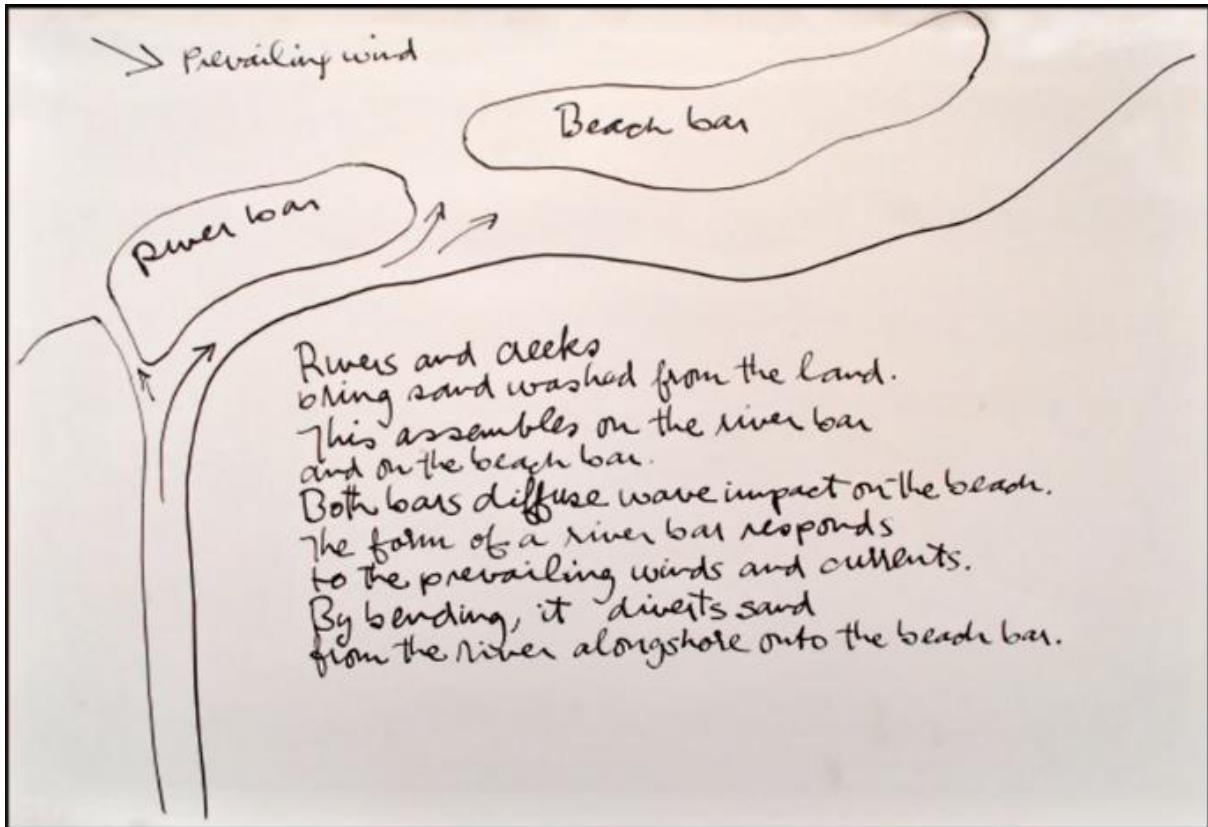 Prevailing wind
Beach bar
River bar
Rivers and creeks
bring sand washed from the land.
This assembles on the river bar
and on the beach bar.
Both bars diffuse wave impact on the beach.
The form of a river bar responds
to the prevailing winds and currents.
By bending, it diverts sand
from the river alongshore onto the beach bar.